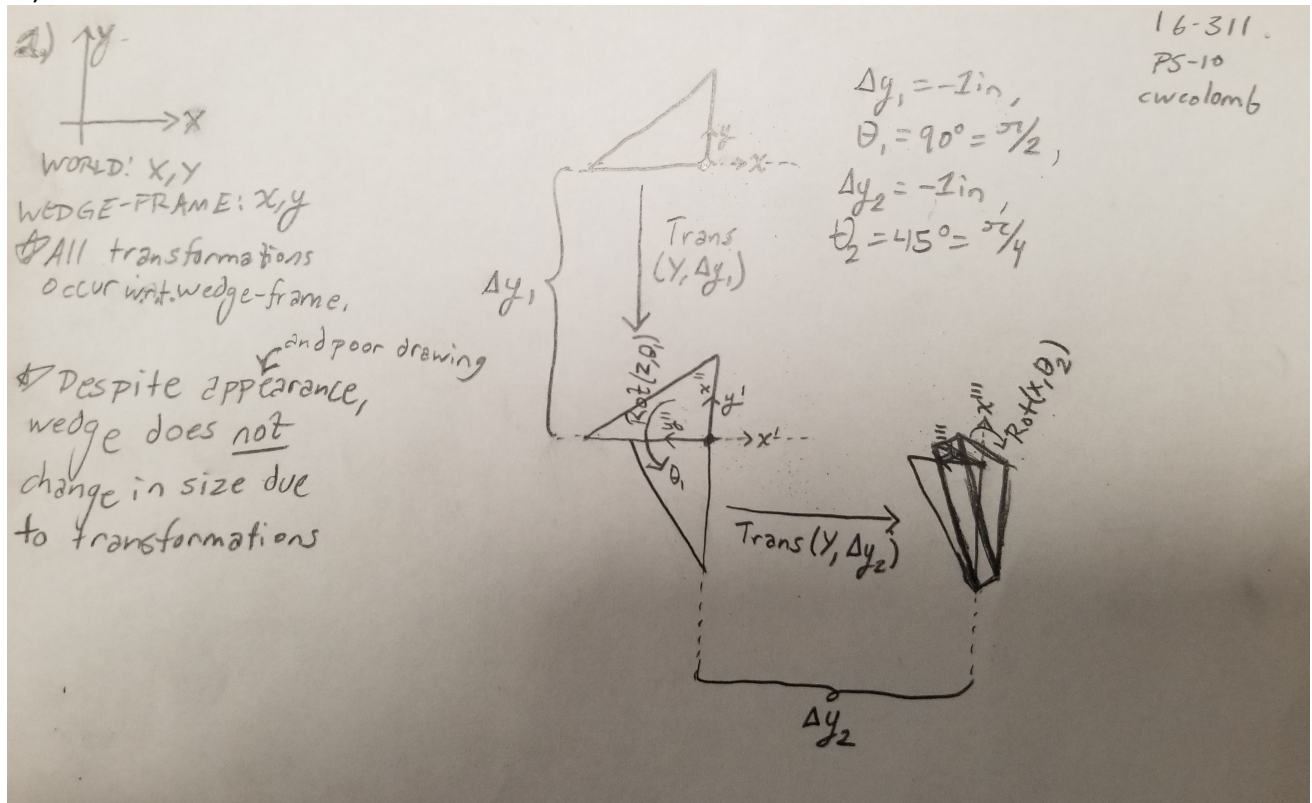 a)
Y
X
WORLD: X, Y
WEDGE-FRAME: x, y
☆ All transformations
occur w.r.t. wedge-frame,
and poor drawing
☆ Despite appearance,
wedge does not
change in size due
to transformations
16-311.
PS-10
cwcolomb
Δy₁ = -1in,
θ₁ = 90° = π/2,
Δy₂ = -1in,
θ₂ = 45° = π/4
y
x
Trans
(Y, Δy₁)
Δy₁
Rot(z, θ₁)
x''
y'
y''
x'
θ₁
Trans(Y, Δy₂)
x'''
Rot(x, θ₂)
Δy₂